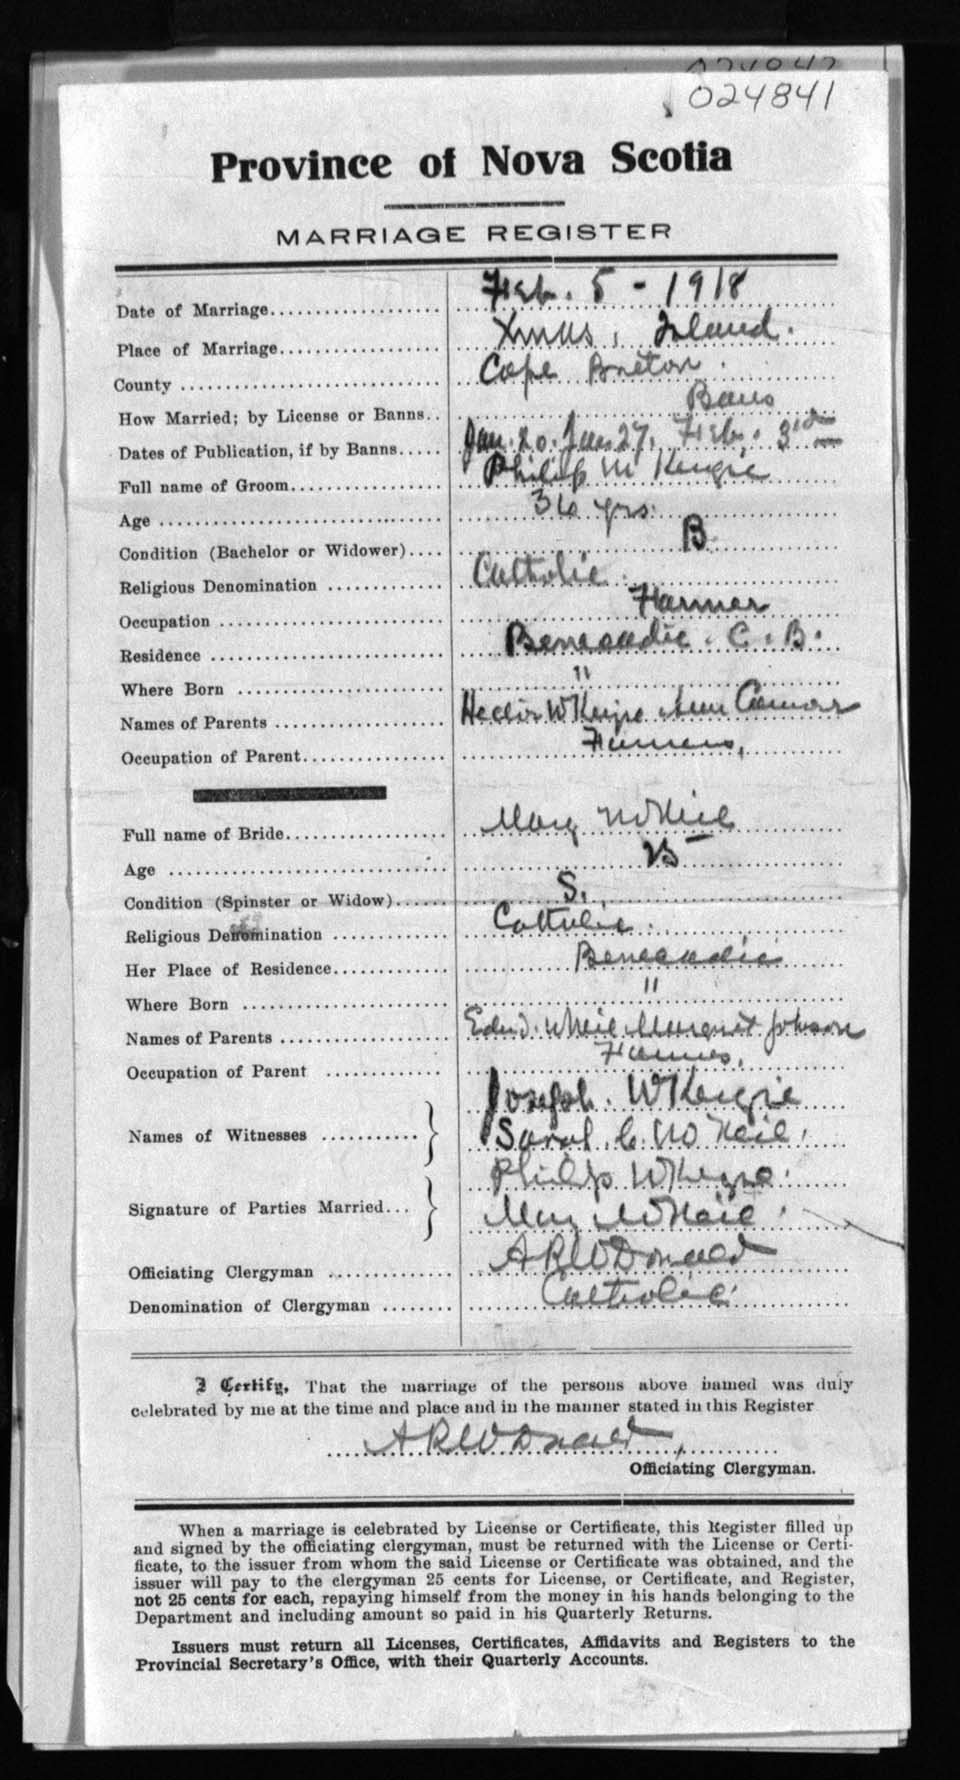 024841
Province of Nova Scotia
MARRIAGE REGISTER
Date of Marriage Feb. 5 - 1918
Place of Marriage Xmas, Island.
County Cape Breton
How Married; by License or Banns Bans
Dates of Publication, if by Banns Jan. 20. Jan 27. Feb. 3
Full name of Groom Philip McKenzie
Age 36 yrs.
Condition (Bachelor or Widower) B
Religious Denomination Catholic
Occupation Farmer
Residence Beneacadie. C. B.
Where Born "
Names of Parents Hector McKenzie Ann
Occupation of Parent Farmers,
Full name of Bride Mary McNeil
Age
Condition (Spinster or Widow) S.
Religious Denomination Catholic.
Her Place of Residence Beneacadie
Where Born "
Names of Parents McNeil Margaret Johnson
Occupation of Parent Farmers,
Names of Witnesses Joseph. McKenzie
Sarah C. McNeil.
Signature of Parties Married Philip McKenzie.
Mary McNeil.
Officiating Clergyman A R McDonald
Denomination of Clergyman Catholic.
I Certify, That the marriage of the persons above named was duly
celebrated by me at the time and place and in the manner stated in this Register
A R McDonald,
Officiating Clergyman.
When a marriage is celebrated by License or Certificate, this Register filled up
and signed by the officiating clergyman, must be returned with the License or Certi-
ficate, to the issuer from whom the said License or Certificate was obtained, and the
issuer will pay to the clergyman 25 cents for License, or Certificate, and Register,
not 25 cents for each, repaying himself from the money in his hands belonging to the
Department and including amount so paid in his Quarterly Returns.
Issuers must return all Licenses, Certificates, Affidavits and Registers to the
Provincial Secretary's Office, with their Quarterly Accounts.